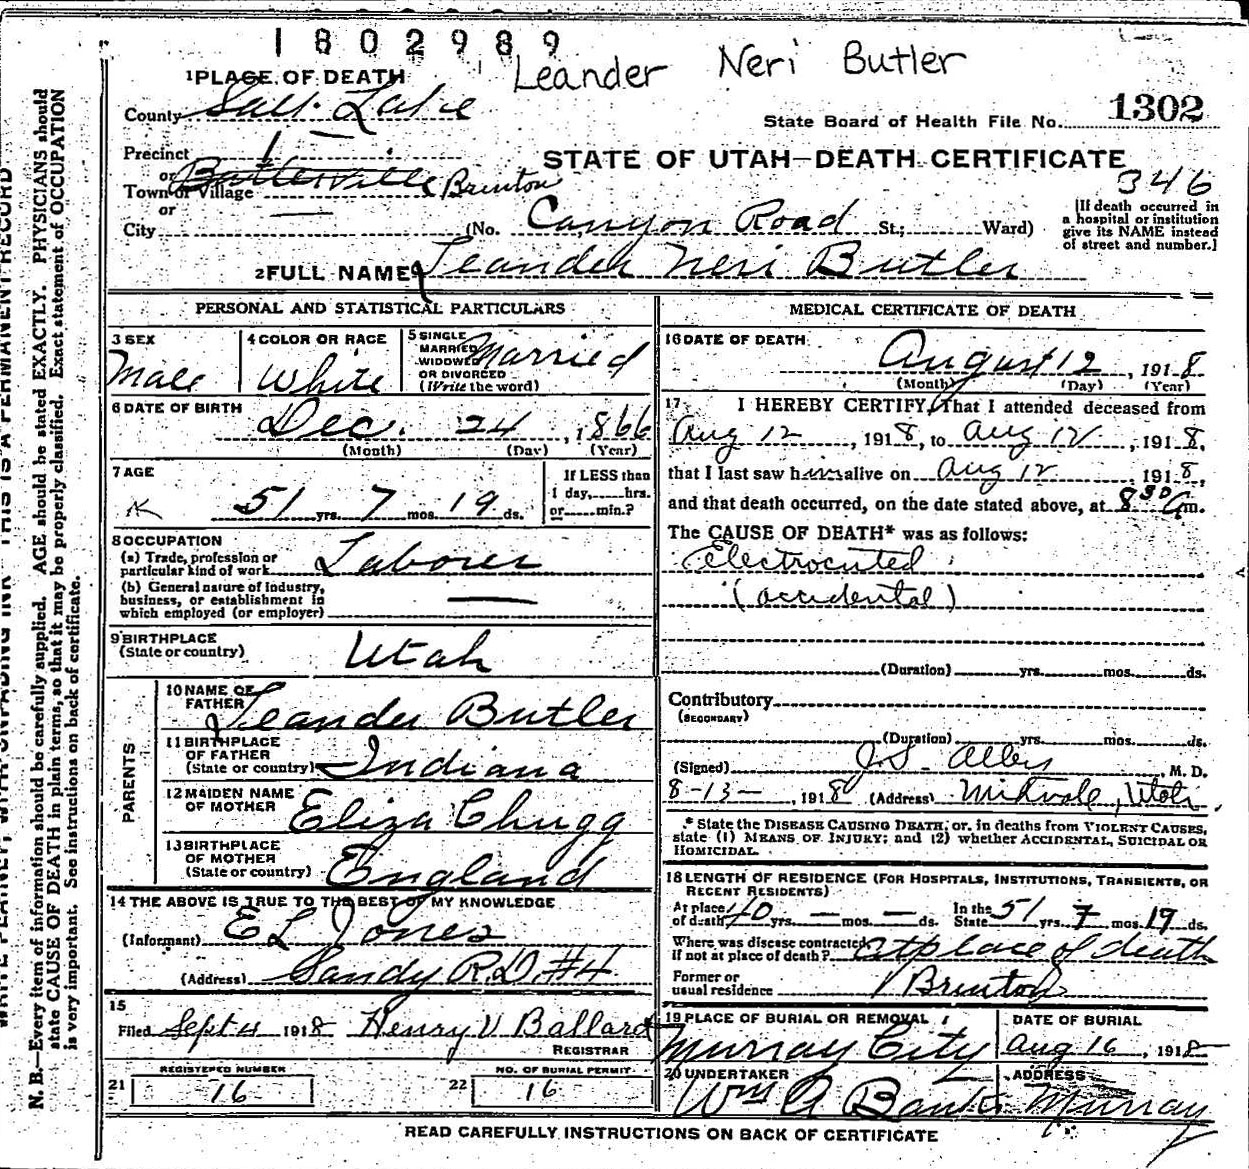 1802989
Leander Neri Butler
1 PLACE OF DEATH
County Salt Lake
State Board of Health File No. 1302
Precinct 1
or
Town or Village Butlerville Brinton
or
City
STATE OF UTAH—DEATH CERTIFICATE
346
(No. Canyon Road St.; Ward)
[If death occurred in
a hospital or institution
give its NAME instead
of street and number.]
2 FULL NAME Leander Neri Butler
PERSONAL AND STATISTICAL PARTICULARS
3 SEX
Male
4 COLOR OR RACE
White
5 SINGLE
MARRIED
WIDOWED
OR DIVORCED
(Write the word)
Married
6 DATE OF BIRTH
Dec. 24, 1866
(Month) (Day) (Year)
7 AGE
51 yrs. 7 mos. 19 ds.
If LESS than
1 day, hrs.
or min.?
8 OCCUPATION
(a) Trade, profession or
particular kind of work Laborer
(b) General nature of industry,
business, or establishment in
which employed (or employer)
9 BIRTHPLACE
(State or country) Utah
PARENTS
10 NAME OF
FATHER Leander Butler
11 BIRTHPLACE
OF FATHER
(State or country) Indiana
12 MAIDEN NAME
OF MOTHER Eliza Chugg
13 BIRTHPLACE
OF MOTHER
(State or country) England
14 THE ABOVE IS TRUE TO THE BEST OF MY KNOWLEDGE
(Informant) E L Jones
(Address) Sandy R.D. #4
15
Filed Sept 4 1918 Henry V Ballard
REGISTRAR
21 REGISTERED NUMBER
16
22 NO. OF BURIAL PERMIT
16
MEDICAL CERTIFICATE OF DEATH
16 DATE OF DEATH
August 12, 1918
(Month) (Day) (Year)
17 I HEREBY CERTIFY, That I attended deceased from
Aug 12, 1918, to Aug 12, 1918,
that I last saw him alive on Aug 12 1918,
and that death occurred, on the date stated above, at 8 30 a m.
The CAUSE OF DEATH* was as follows:
Electrocuted
(accidental)
(Duration) yrs. mos. ds.
Contributory
(SECONDARY)
(Duration) yrs. mos. ds.
(Signed) M. D.
8-13-, 1918 (Address) Midvale, Utah.
* State the DISEASE CAUSING DEATH, or, in deaths from VIOLENT CAUSES,
state (1) MEANS OF INJURY; and (2) whether ACCIDENTAL, SUICIDAL OR
HOMICIDAL.
18 LENGTH OF RESIDENCE (FOR HOSPITALS, INSTITUTIONS, TRANSIENTS, OR
RECENT RESIDENTS)
At place
of death 40 yrs. — mos. — ds. In the
State 51 yrs. 7 mos. 19 ds.
Where was disease contracted
if not at place of death? at place of death
Former or
usual residence Brinton
19 PLACE OF BURIAL OR REMOVAL
Murray City
DATE OF BURIAL
Aug 16, 1918
20 UNDERTAKER
Wm A Banks
ADDRESS
Murray
READ CAREFULLY INSTRUCTIONS ON BACK OF CERTIFICATE
N. B.—Every item of information should be carefully supplied. AGE should be stated EXACTLY. PHYSICIANS should
state CAUSE OF DEATH in plain terms, so that it may be properly classified. Exact statement of OCCUPATION
is very important. See instructions on back of certificate.